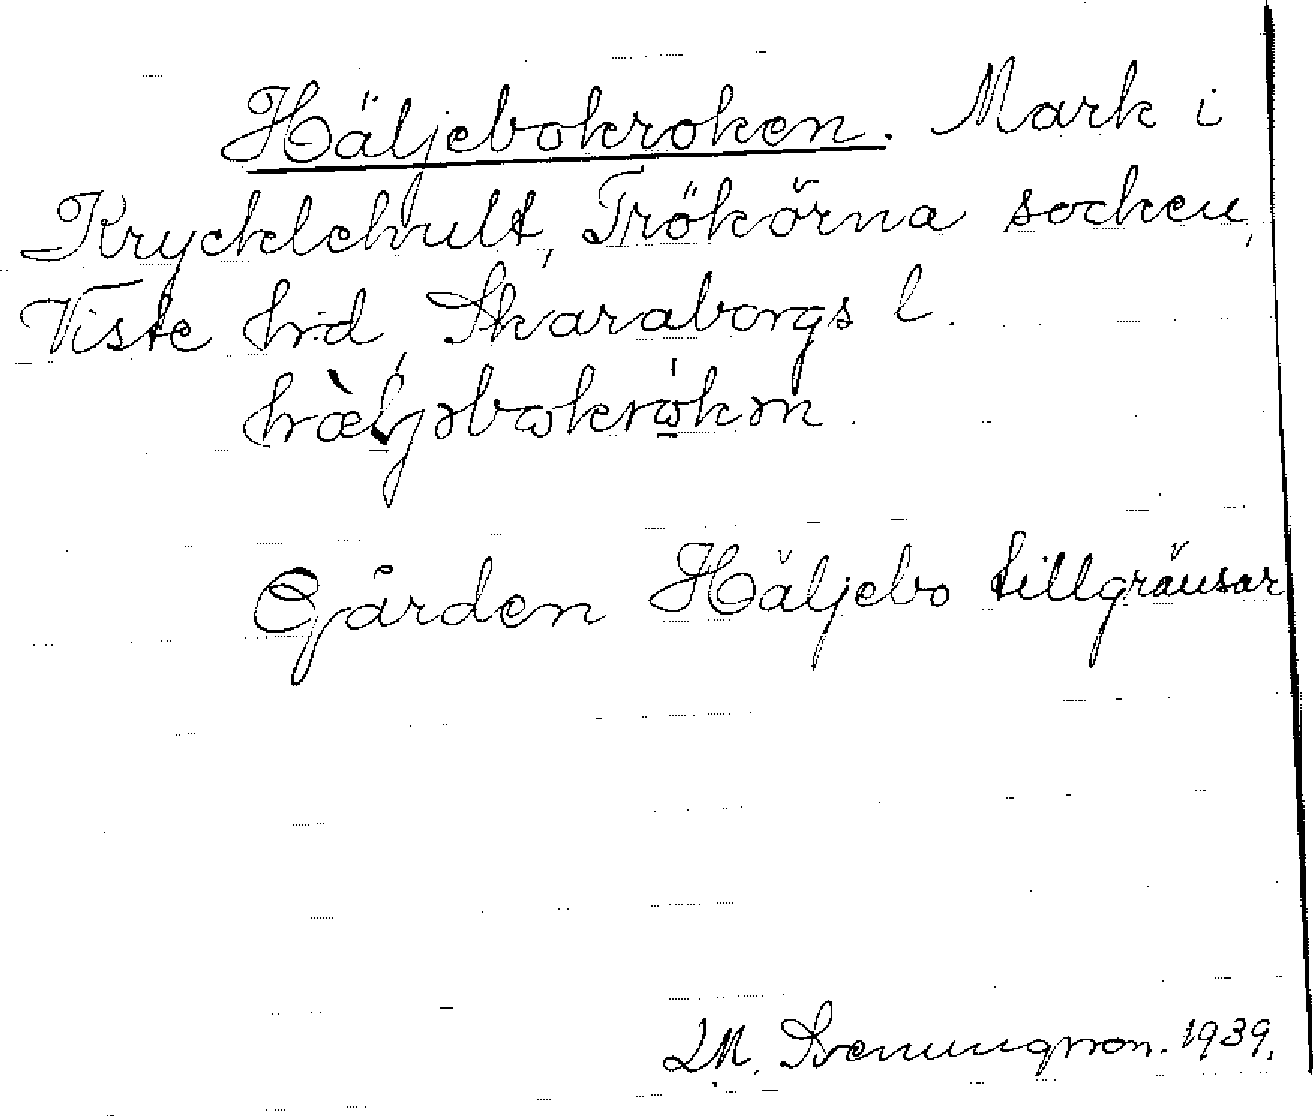 Häljebokroken. Mark i
Krycklehult, Trökörna socken,
Viste hrd, Skaraborgs l.
Gården Häljebo tillgränsar
LM. Svenungsson. 1939.